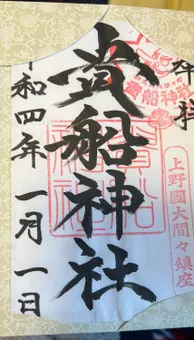 奉拝
貴船神社
上野國大間々鎮座
貴船神社
令和四年一月一日